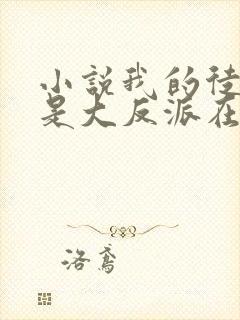 小説我的徒
是大反派在
洛鸢